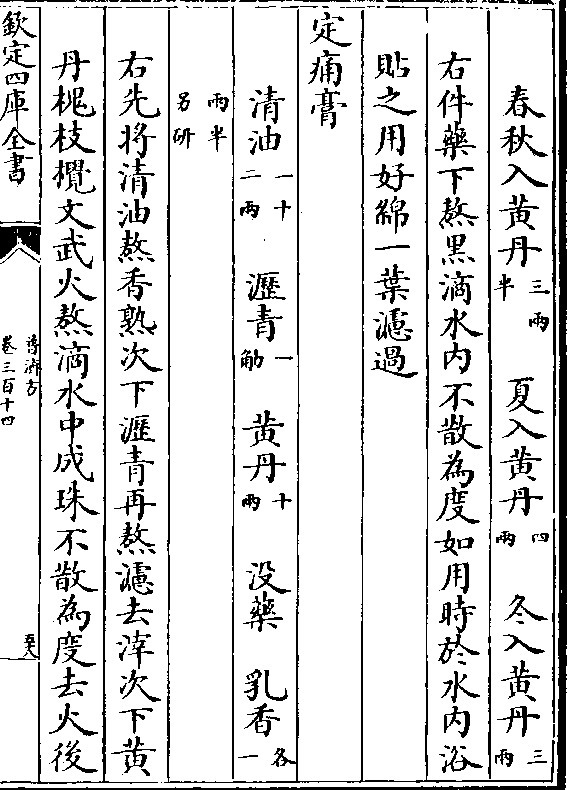 春秋入黄丹三兩半 夏入黄丹四兩 冬入黄丹三兩
右件藥下熬黑滴水内不散為度如用時於水内浴
貼之用好綿一葉濾過
定痛膏
清油一十二兩 瀝青一觔 黄丹十兩 没藥 乳香各一
兩半另研
右先將清油熬香熟次下瀝青再熬濾去滓次下黄
丹桃枝攪文武火熬滴水中成珠不散為度去火後
欽定四庫全書
普濟方
卷三百十四